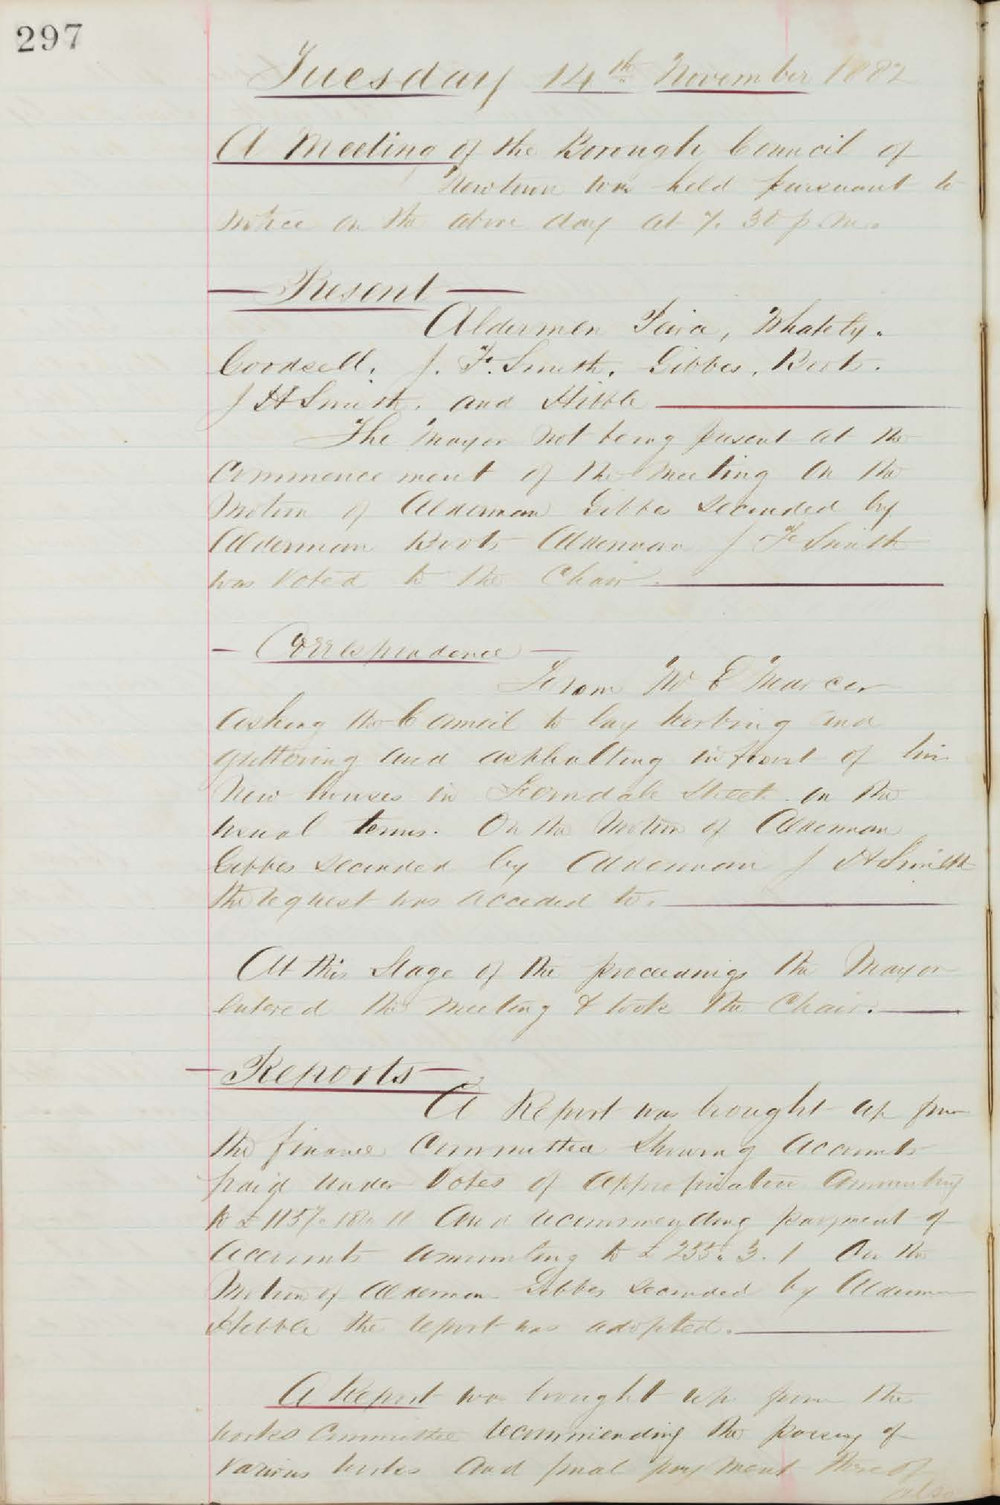 297
Tuesday 14th November 1882
A Meeting of the Borough Council of
Newtown was held pursuant to
notice on the above day at 7.30 p.m.
Present
Aldermen Whately.
Goodsell. J. F. Smith. Gibbes.
J H Smith. and Hibble
The Mayor not being present at the
Commencement of the Meeting on the
Motion of Alderman Gibbes seconded by
Alderman Alderman J F Smith
was Voted to the Chair.
Correspondence
From Mr E Mercer
asking the Council to lay kerbing and
guttering and asphalting in front of his
New houses in Ferndale Street on the
usual terms. On the Motion of Alderman
Gibbes seconded by Alderman J H Smith
the request was acceded to.
At this Stage of the proceedings the Mayor
entered the meeting & took the Chair.
Reports
A Report was brought up from
the finance Committee Showing Accounts
paid under Votes of appropriation Amounting
to £1157.18.11 And recommending payment of
Accounts amounting to £235.3.1 On the
Motion of Alderman Gibbes seconded by Alderman
Hibble the report was adopted.
A Report was brought up from the
works Committee recommending the passing of
various works and final payment thereof
also